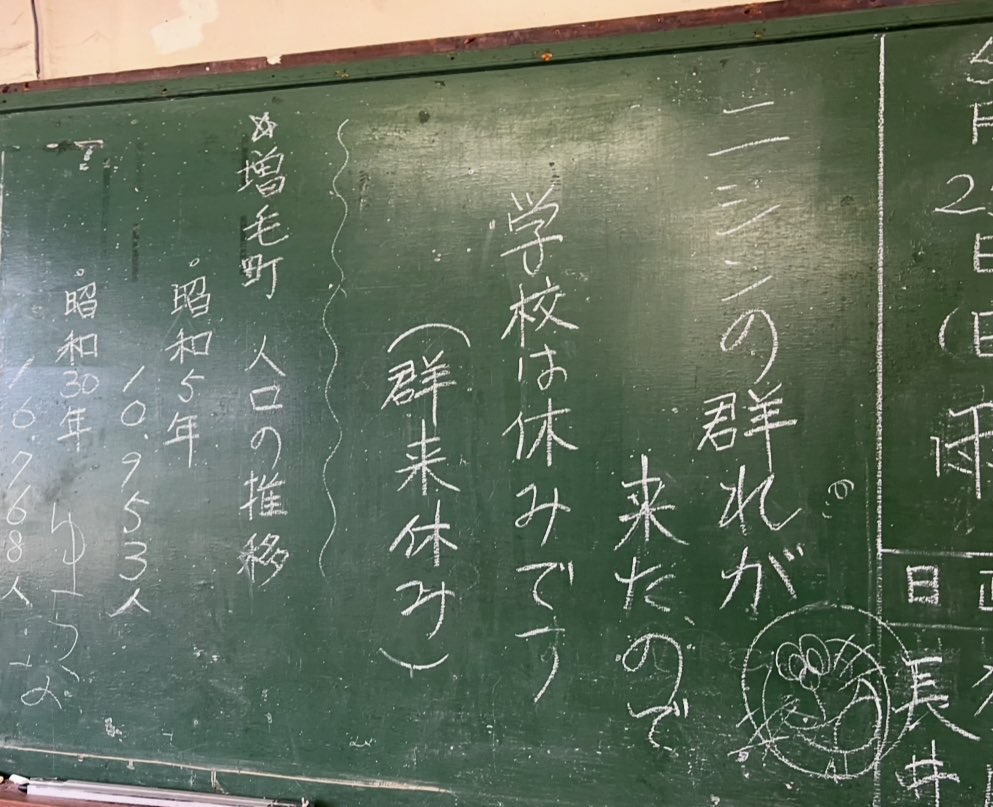 日
長井
ニシンの群れが
来たので
学校は休みです
(群来休み)
☆増毛町 人口の推移
。昭和5年
10.953人
。昭和30年
16.768人